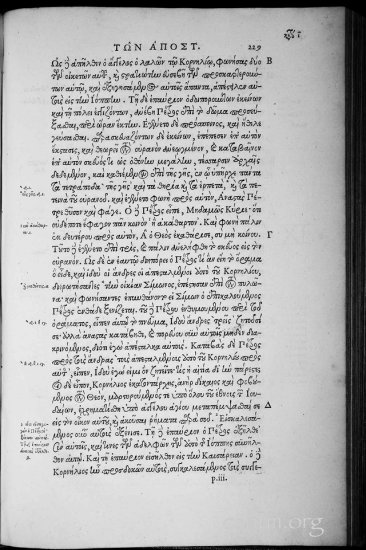 ΤΩΝ ΑΠΟΣΤ. 229
Ὡς δὲ ἀπῆλθεν ὁ ἄγγελος ὁ λαλῶν τῷ Κορνηλίῳ, φωνήσας δύο Β
τῶν οἰκετῶν αὐτοῦ, καὶ στρατιώτην εὐσεβῆ τῶν προσκαρτερούν-
των αὐτῷ, καὶ ἐξηγησάμενος αὐτοῖς ἅπαντα, ἀπέστειλεν αὐ-
τοὺς εἰς τὴν Ἰόππην. Τῇ δὲ ἐπαύριον ὁδοιπορούντων ἐκείνων
καὶ τῇ πόλει ἐγγιζόντων, ἀνέβη Πέτρος ἐπὶ τὸ δῶμα προσεύ-
ξασθαι, περὶ ὥραν ἕκτην. Ἐγένετο δὲ πρόσπεινος, καὶ ἤθελε
γεύσασθαι. παρασκευαζόντων δὲ ἐκείνων, ἐπέπεσεν ἐπ' αὐτὸν
ἔκστασις, καὶ θεωρεῖ τὸν οὐρανὸν ἀνεῳγμένον, καὶ καταβαῖνον
ἐπ' αὐτὸν σκεῦός τι ὡς ὀθόνην μεγάλην, τέσσαρσιν ἀρχαῖς
δεδεμένον, καὶ καθιέμενον ἐπὶ τῆς γῆς, ἐν ᾧ ὑπῆρχε πάντα
τὰ τετράποδα τῆς γῆς καὶ τὰ θηρία καὶ τὰ ἑρπετὰ, καὶ τὰ πε-
τεινὰ τοῦ οὐρανοῦ. καὶ ἐγένετο φωνὴ πρὸς αὐτὸν, Ἀναστὰς Πέ-
τρε θῦσον καὶ φάγε. Ὁ δὲ Πέτρος εἶπε, Μηδαμῶς Κύριε· ὅτι
οὐδέποτε ἔφαγον πᾶν κοινὸν ἢ ἀκάθαρτον. Καὶ φωνὴ πάλιν
ἐκ δευτέρου πρὸς αὐτὸν, Ἃ ὁ Θεὸς ἐκαθάρισε, σὺ μὴ κοίνου. Γ
Τοῦτο δὲ ἐγένετο ἐπὶ τρὶς, καὶ πάλιν ἀνελήφθη τὸ σκεῦος εἰς τὸν
οὐρανόν. Ὡς δὲ ἐν ἑαυτῷ διηπόρει ὁ Πέτρος τί ἂν εἴη τὸ ὅραμα
ὃ εἶδε, καὶ ἰδοὺ οἱ ἄνδρες οἱ ἀπεσταλμένοι ἀπὸ τοῦ Κορνηλίου,
διερωτήσαντες τὴν οἰκίαν Σίμωνος, ἐπέστησαν ἐπὶ τὸν πυλῶ-
να· καὶ φωνήσαντες ἐπυνθάνοντο εἰ Σίμων ὁ ἐπικαλούμενος
Πέτρος ἐνθάδε ξενίζεται. τοῦ δὲ Πέτρου ἐνθυμουμένου περὶ τοῦ
ὁράματος, εἶπεν αὐτῷ τὸ πνεῦμα, Ἰδοὺ ἄνδρες τρεῖς ζητοῦσί
σε· ἀλλὰ ἀναστὰς κατάβηθι, καὶ πορεύου σὺν αὐτοῖς μηδὲν δια-
κρινόμενος, διότι ἐγὼ ἀπέσταλκα αὐτούς. Καταβὰς δὲ Πέτρος
πρὸς τοὺς ἄνδρας τοὺς ἀπεσταλμένους ἀπὸ τοῦ Κορνηλίου πρὸς
αὐτὸν, εἶπεν, Ἰδοὺ ἐγώ εἰμι ὃν ζητεῖτε· τίς ἡ αἰτία δι' ἣν πάρεστε;
Οἱ δὲ εἶπον, Κορνήλιος ἑκατοντάρχης, ἀνὴρ δίκαιος καὶ φοβού-
μενος τὸν Θεὸν, μαρτυρούμενός τε ὑπὸ ὅλου τοῦ ἔθνους τῶν Ἰου-
δαίων, ἐχρηματίσθη ὑπὸ ἀγγέλου ἁγίου μεταπέμψασθαί σε Δ
εἰς τὸν οἶκον αὐτοῦ, καὶ ἀκοῦσαι ῥήματα παρὰ σοῦ. Εἰσκαλεσά-
μενος οὖν αὐτοὺς ἐξένισε. Τῇ δὲ ἐπαύριον ὁ Πέτρος ἐξῆλθε
σὺν αὐτοῖς, καί τινες τῶν ἀδελφῶν τῶν ἀπὸ τῆς Ἰόππης συνῆλ-
θον αὐτῷ. Καὶ τῇ ἐπαύριον εἰσῆλθον εἰς τὴν Καισάρειαν. ὁ δὲ
Κορνήλιος ἦν προσδοκῶν αὐτοὺς, συγκαλεσάμενος τοὺς συγγε-
p.iii.